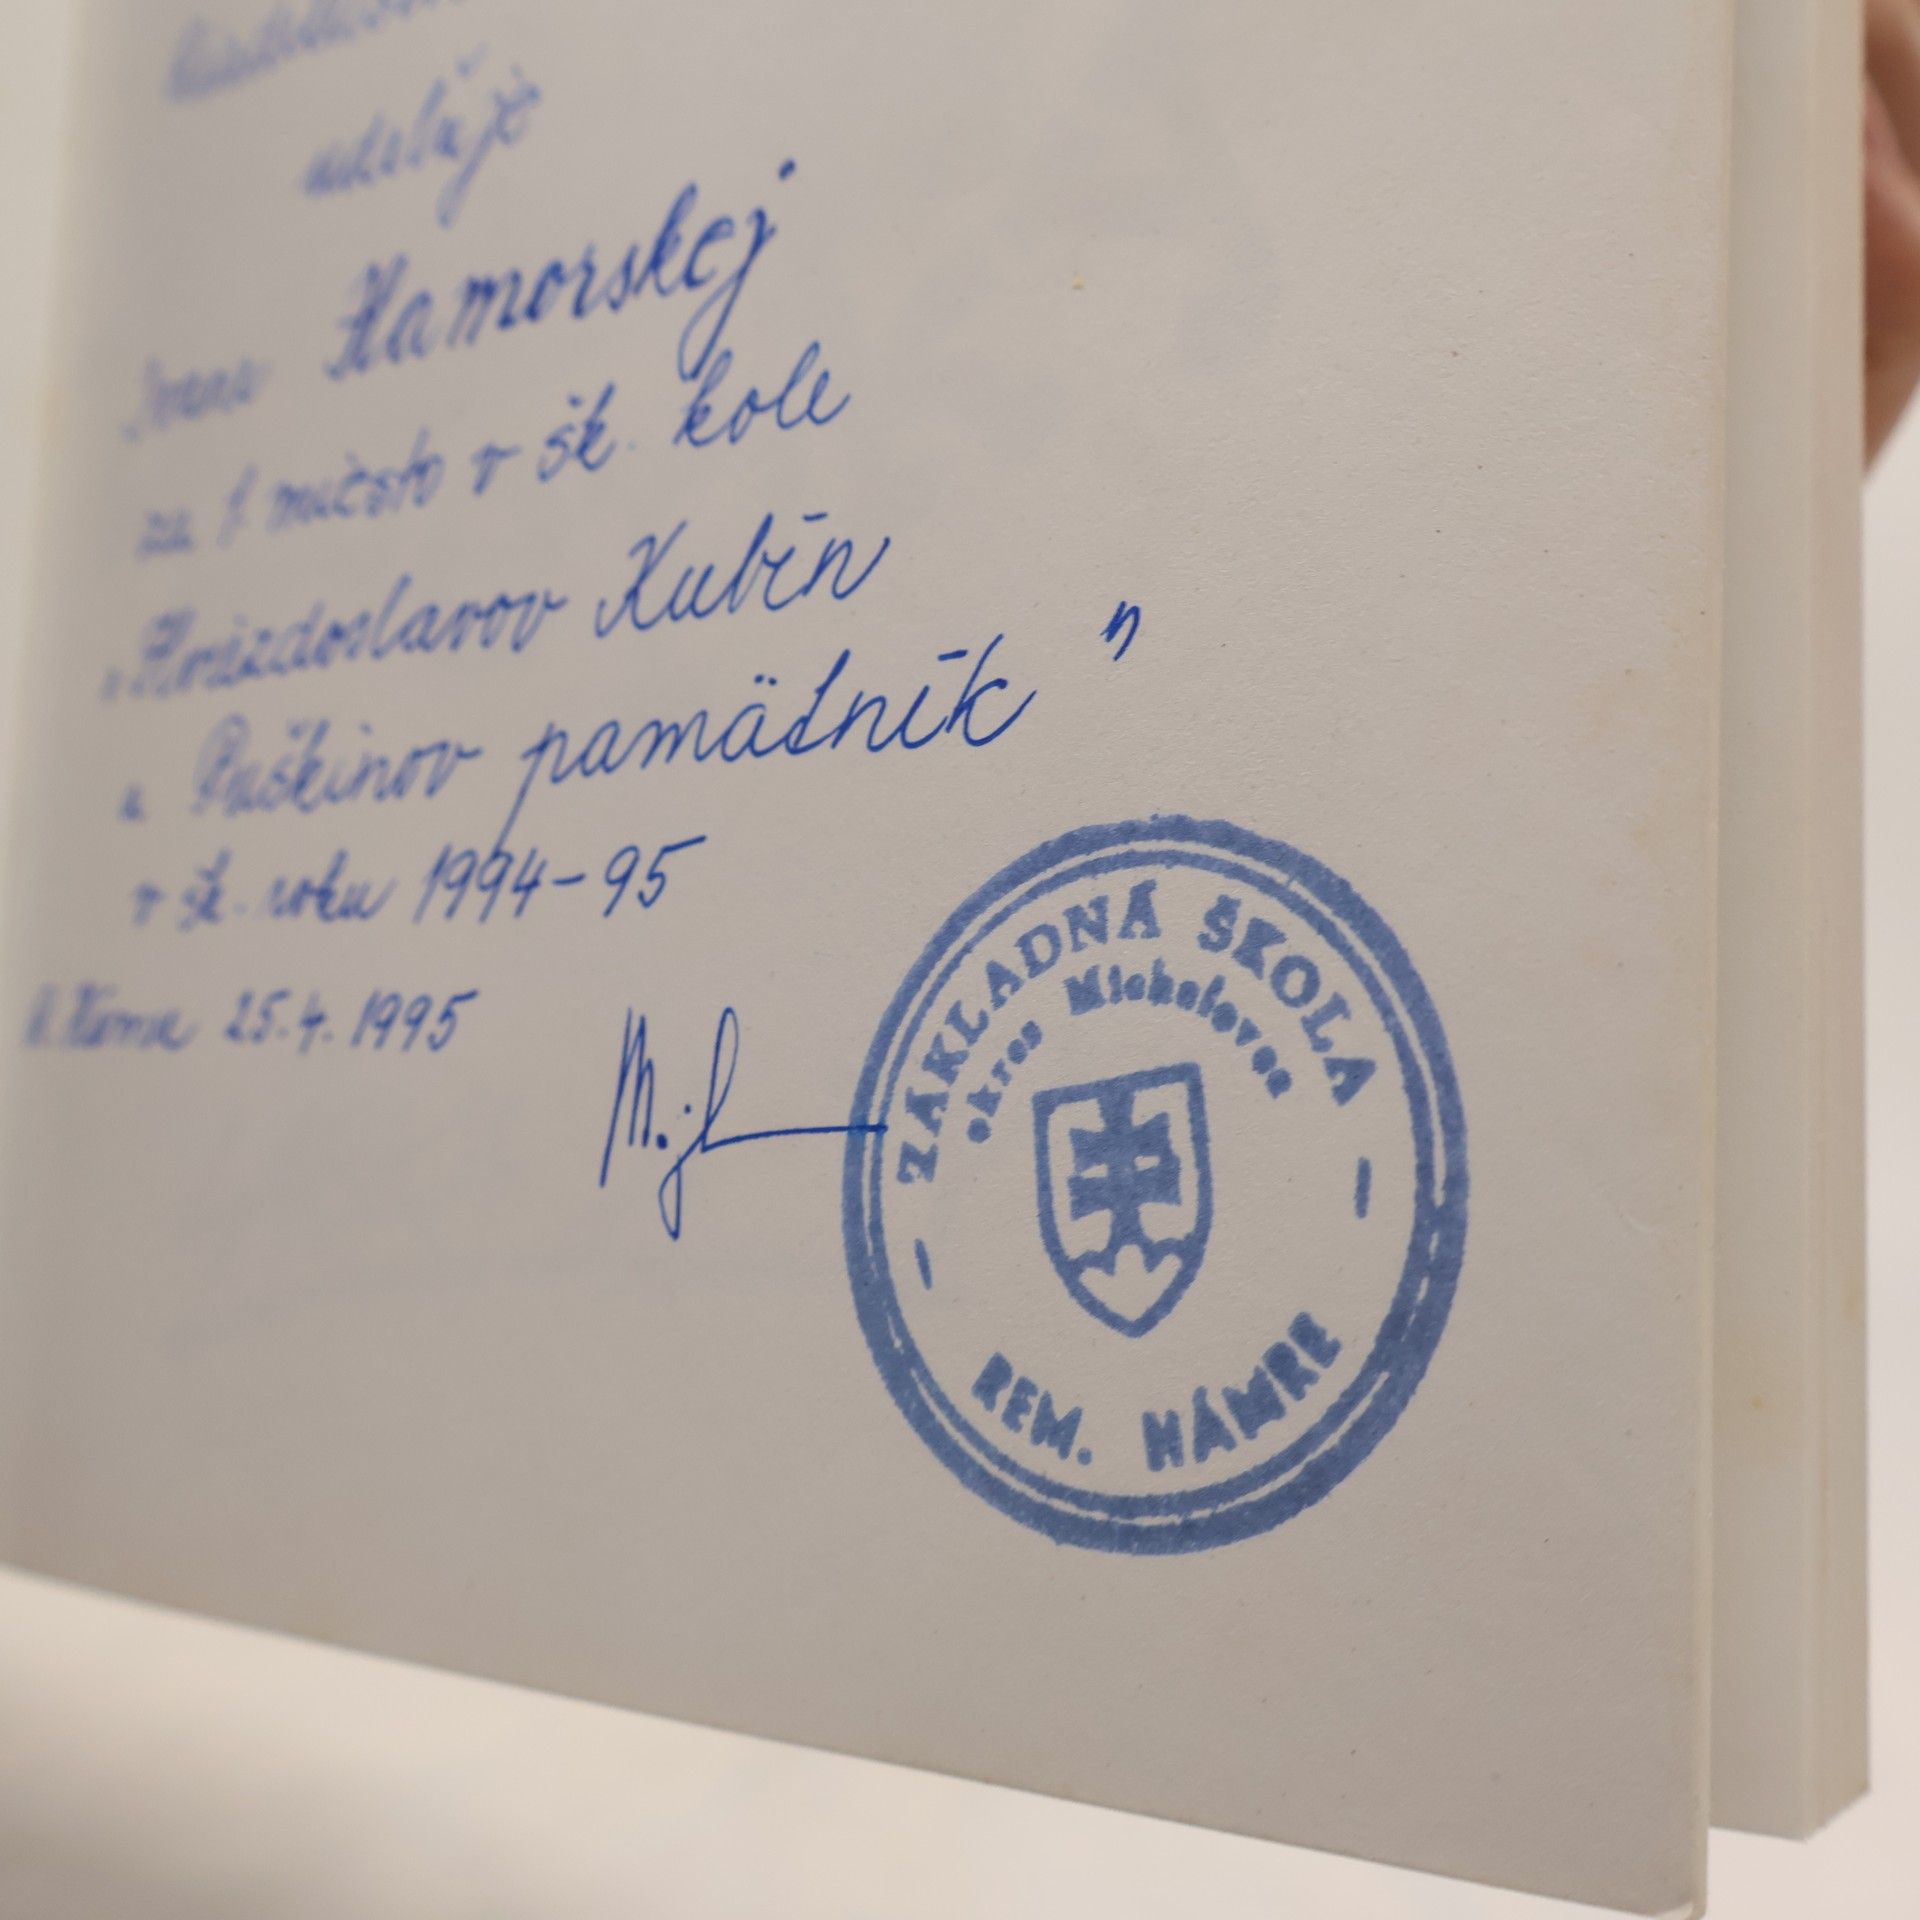 udeľuje
Hamorskej
za 1. miesto v šk. kole
"Hviezdoslavov Kubín
a Puškinov pamätník"
v šk. roku 1994-95
25.4.1995
ZÁKLADNÁ ŠKOLA
okres Michalovce
REM. HÁMRE